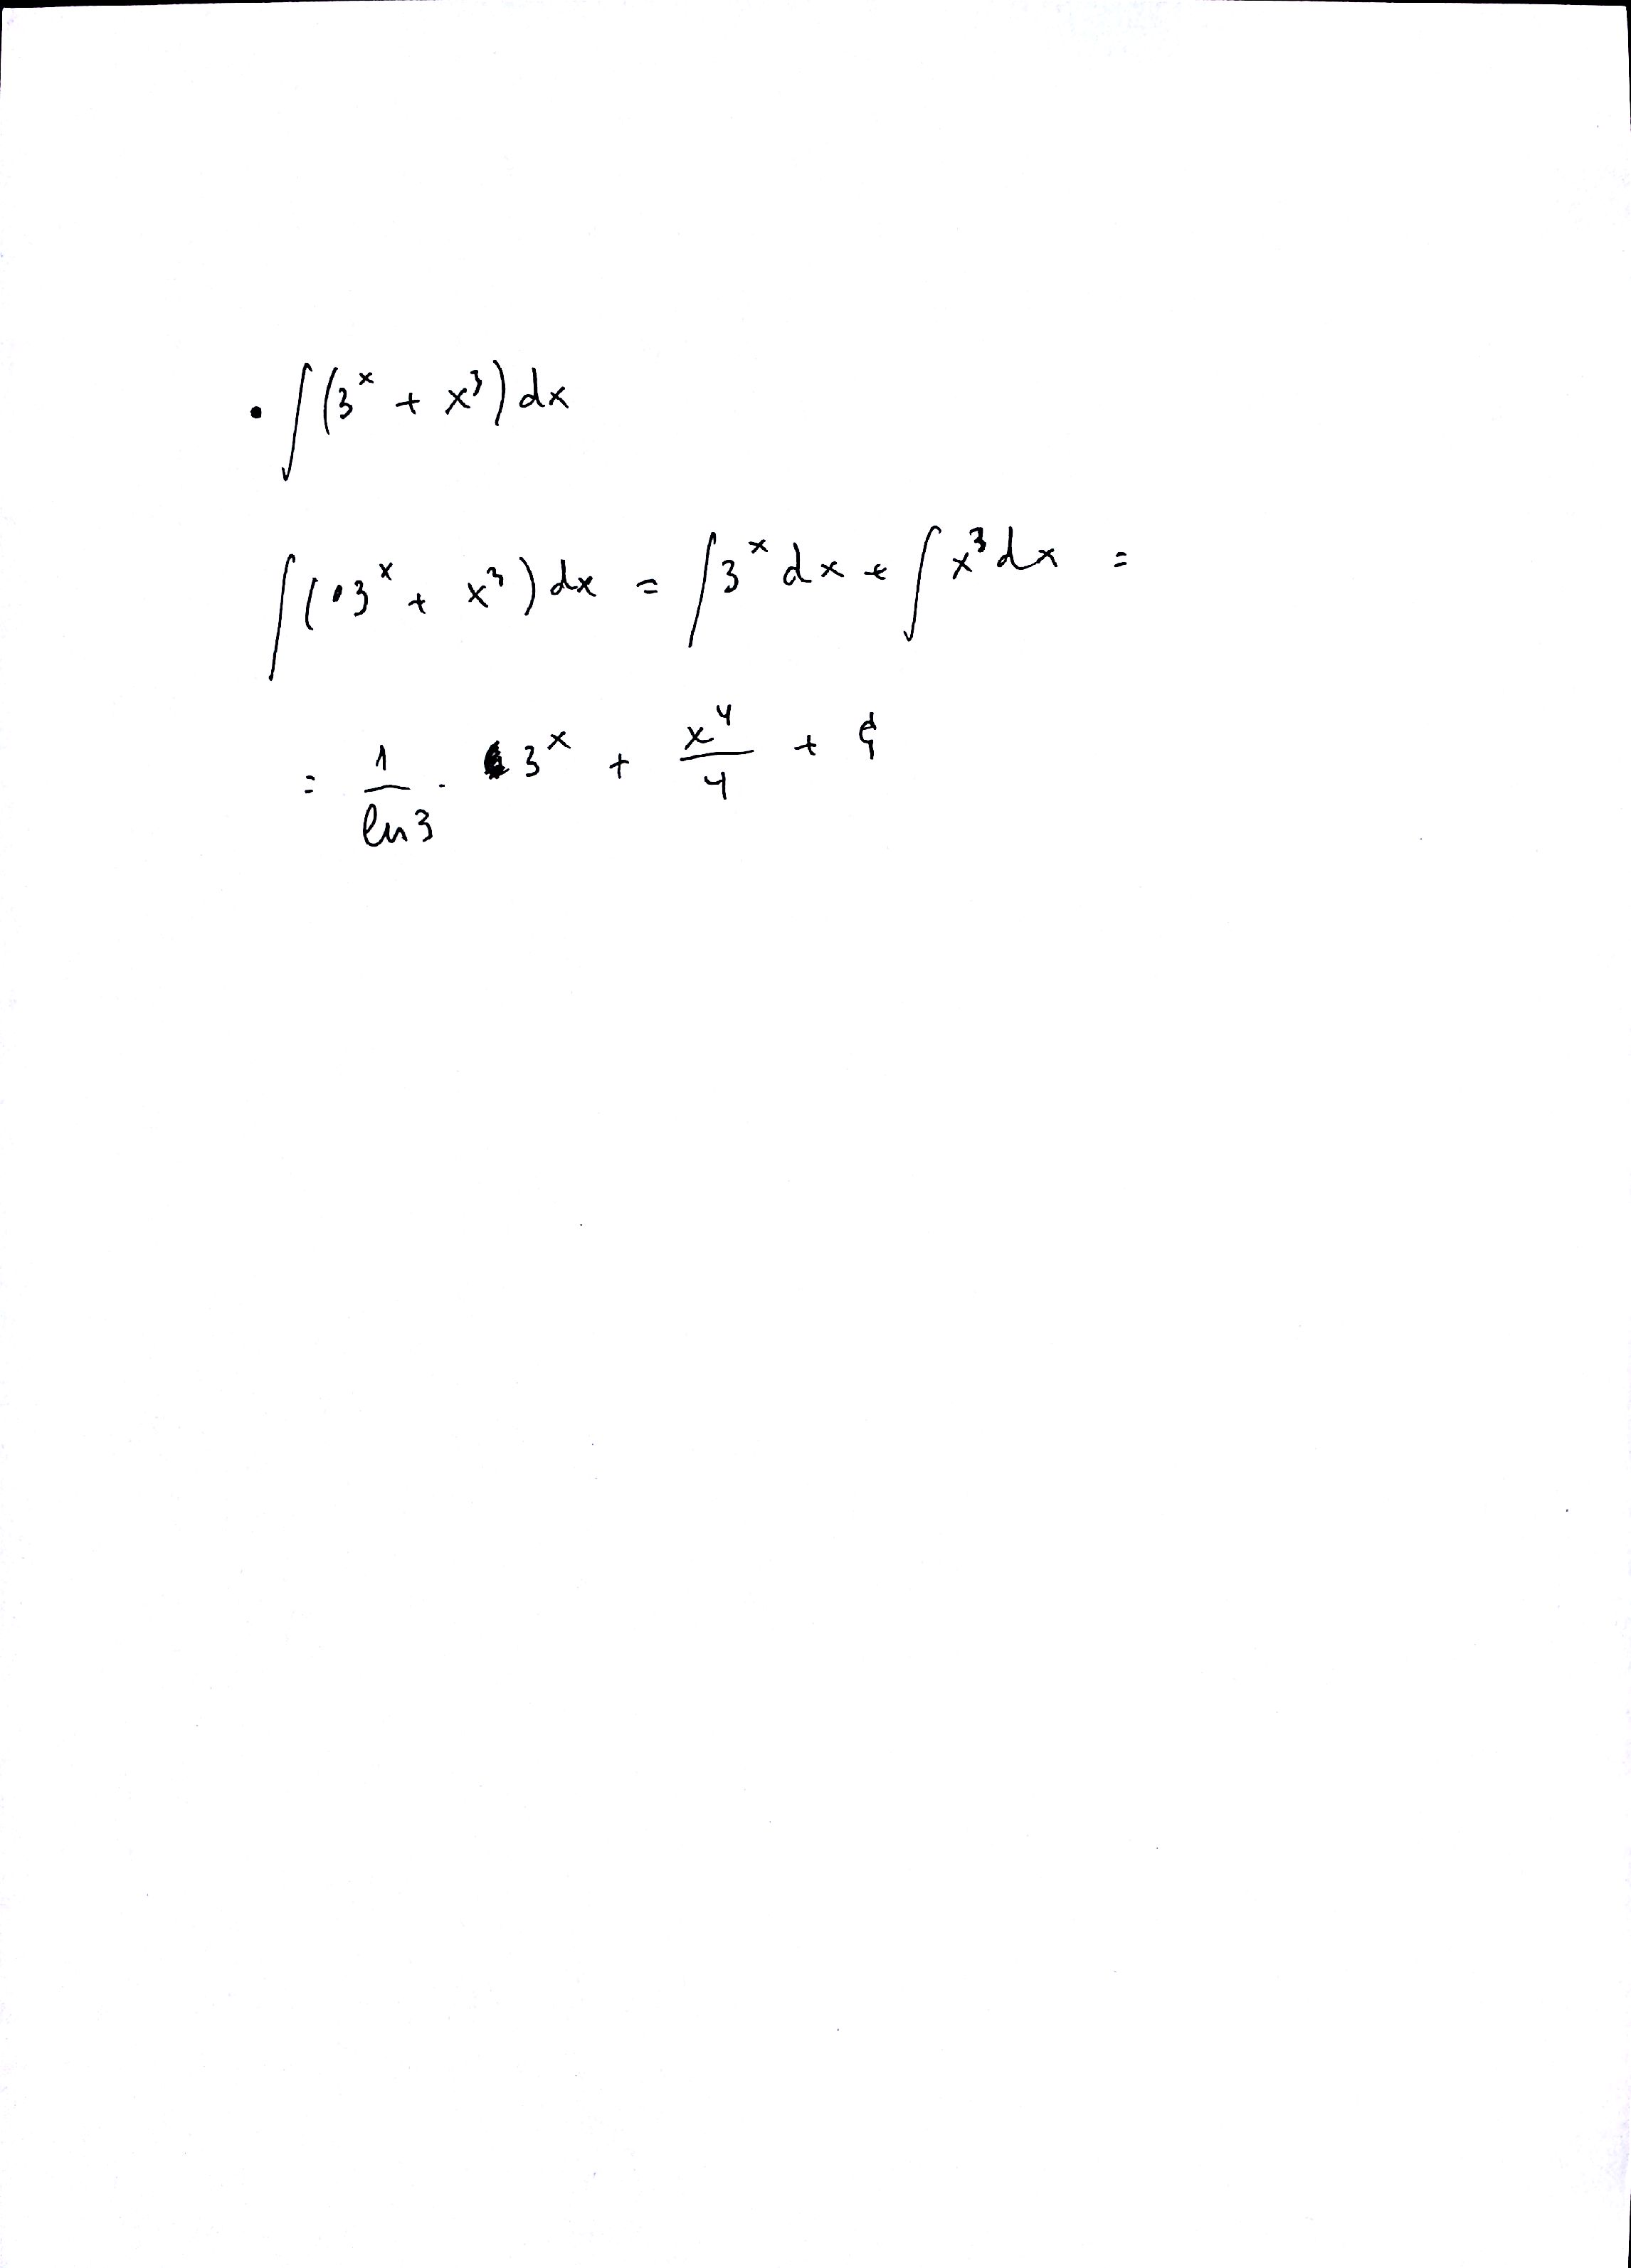 • ∫(3ˣ + x³) dx
∫(•3ˣ + x³) dx = ∫3ˣ dx + ∫x³ dx =
= 1/ln3 · 3ˣ + x⁴/4 + C